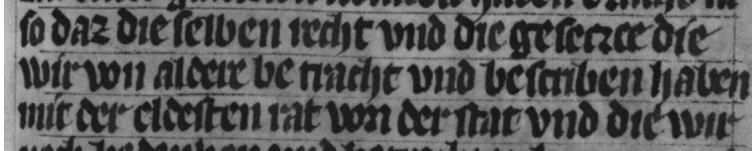 so daz die selben recht vnd die gesetzce die
wir von aldere be tracht vnd bescriben haben
mit der eldesten rat von der stat vnd die wir